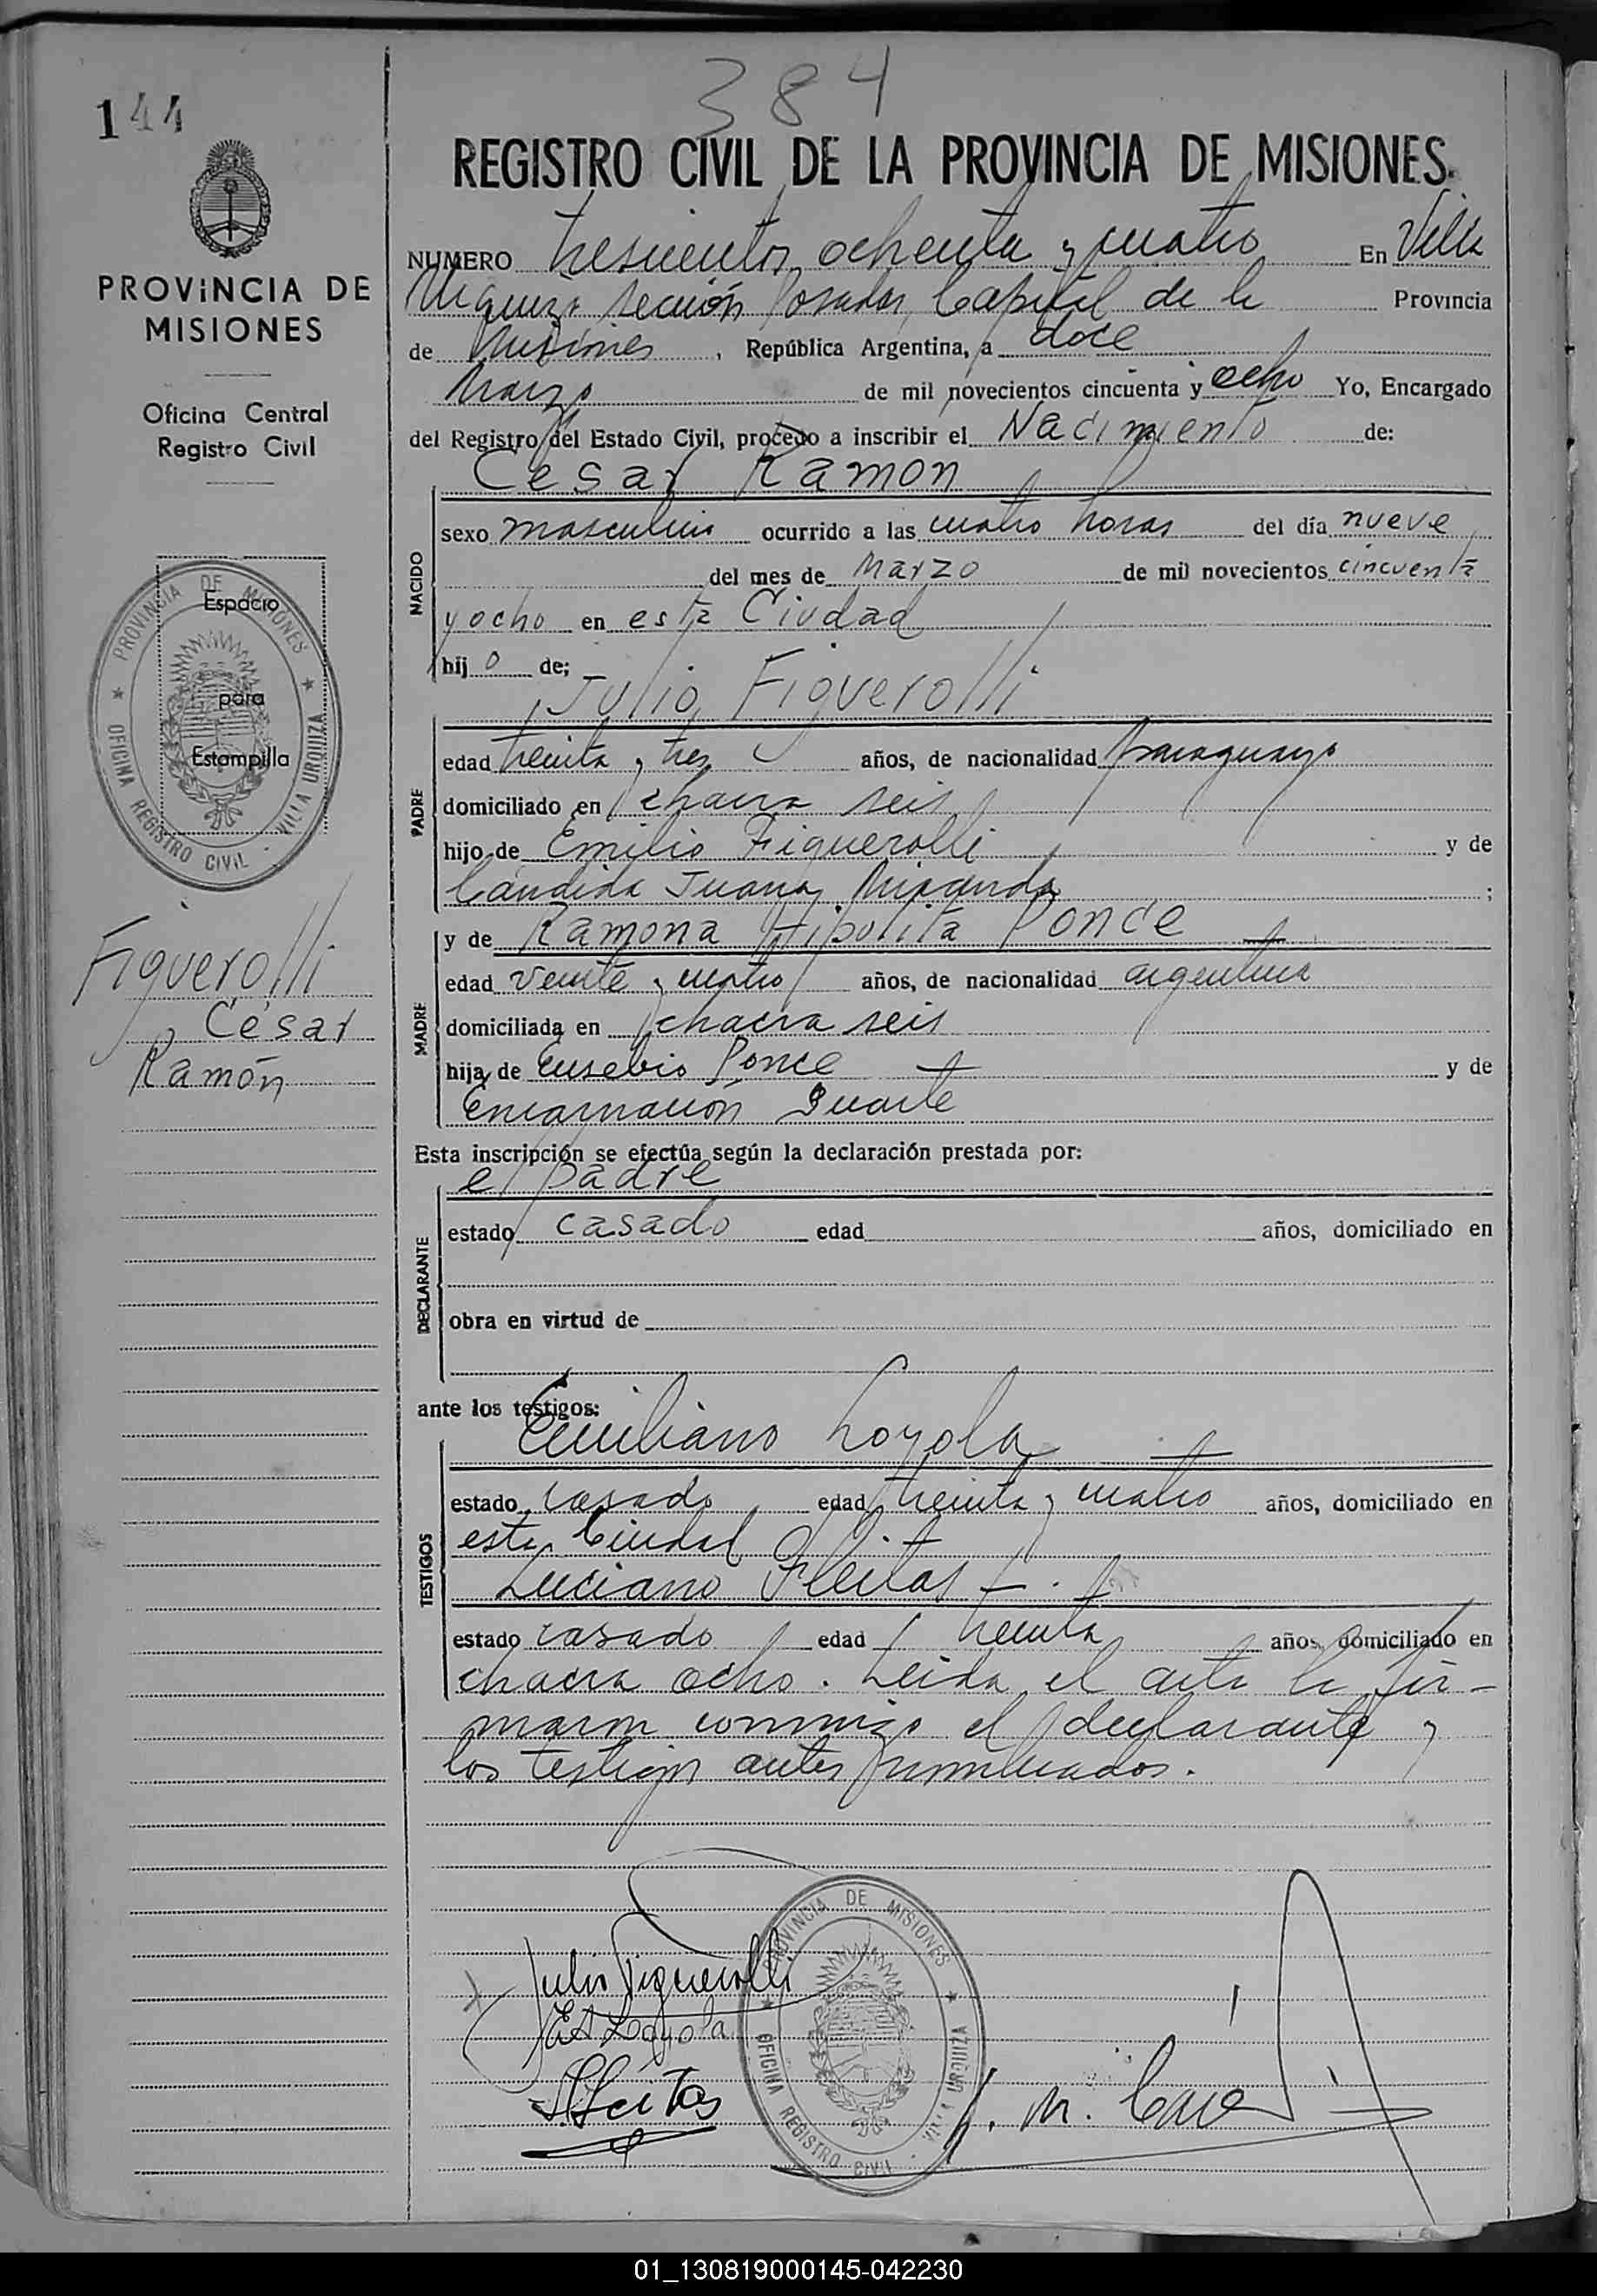 384
144
REGISTRO CIVIL DE LA PROVINCIA DE MISIONES.
PROViNCIA DE
MISIONES
Oficina Central
Registro Civil
Espacio
para
Estampilla
PROVINCIA DE MISIONES
OFICINA REGISTRO CIVIL - VILLA URQUIZA
Figuerolli
César
Ramón
NUMERO trescientos ochenta y cuatro En Villa
Urquiza sección Posadas, Capital de la Provincia
de Misiones, República Argentina, a doce
Marzo de mil novecientos cincuenta y ocho Yo, Encargado
del Registro del Estado Civil, procedo a inscribir el Nacimiento de:
César Ramón
NACIDO
sexo masculino ocurrido a las cuatro horas del día nueve
del mes de Marzo de mil novecientos cincuenta
y ocho en esta Ciudad
hijo de;
Julio Figuerolli
PADRE
edad treinta y tres años, de nacionalidad paraguayo
domiciliado en chacra seis
hijo de Emilio Figuerolli y de
Cándida Juana Miranda;
y de Ramona Hipólita Ponce
MADRE
edad veinte y cuatro años, de nacionalidad argentina
domiciliada en chacra seis
hija de Eusebio Ponce y de
Encarnación Duarte
Esta inscripción se efectúa según la declaración prestada por:
el padre
DECLARANTE
estado casado edad años, domiciliado en
obra en virtud de
ante los testigos:
Emiliano Loyola
TESTIGOS
estado casado edad treinta y cuatro años, domiciliado en
esta Ciudad
Luciano Fleitas
estado casado edad treinta años, domiciliado en
chacra ocho. Leida el acta la fir-
maron conmigo el declarante y
los testigos antes nombrados.
Julio Figuerolli
E A Loyola
L. Fleitas
PROVINCIA DE MISIONES
OFICINA REGISTRO CIVIL - VILLA URQUIZA
01_130819000145-042230